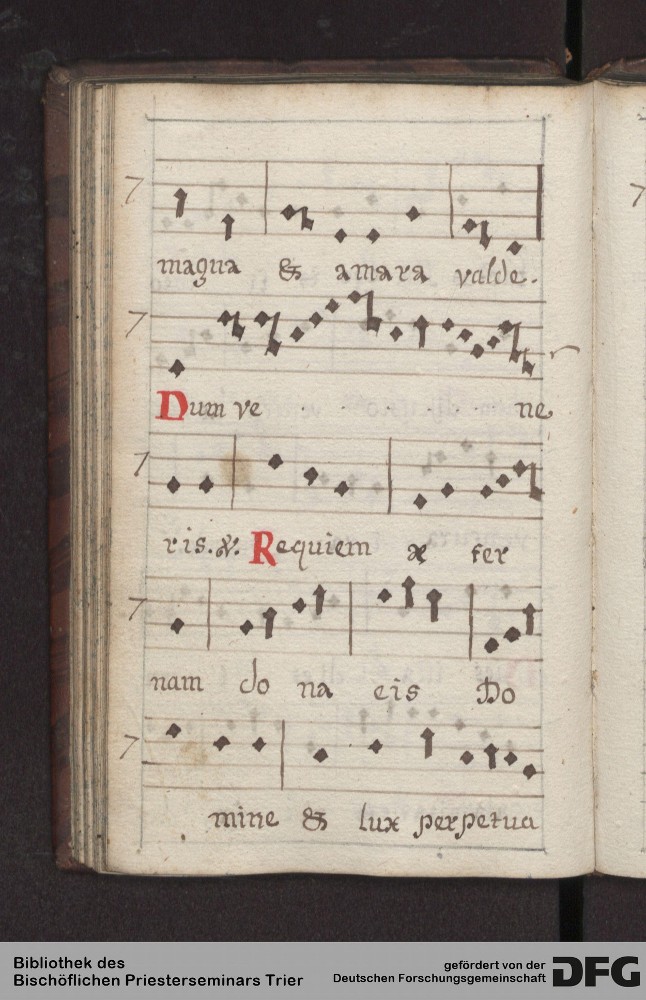 magna & amara valde.
Dum ve ne
ris. ℣. Requiem æ ter
nam do na eis Do
mine & lux perpetua
Bibliothek des
Bischöflichen Priesterseminars Trier
gefördert von der
Deutschen Forschungsgemeinschaft
DFG